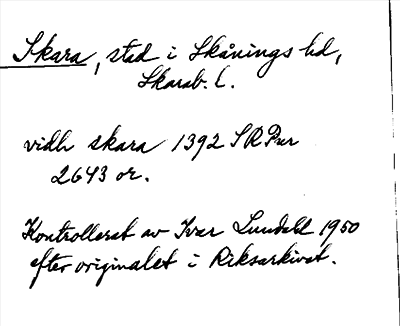 Skara, stad i Skånings hd,
Skarab. l.
vidh skara 1392 SRPer
2643 or.
Kontrollerat av Ivar Lundahl 1950
efter originalet i Riksarkivet.